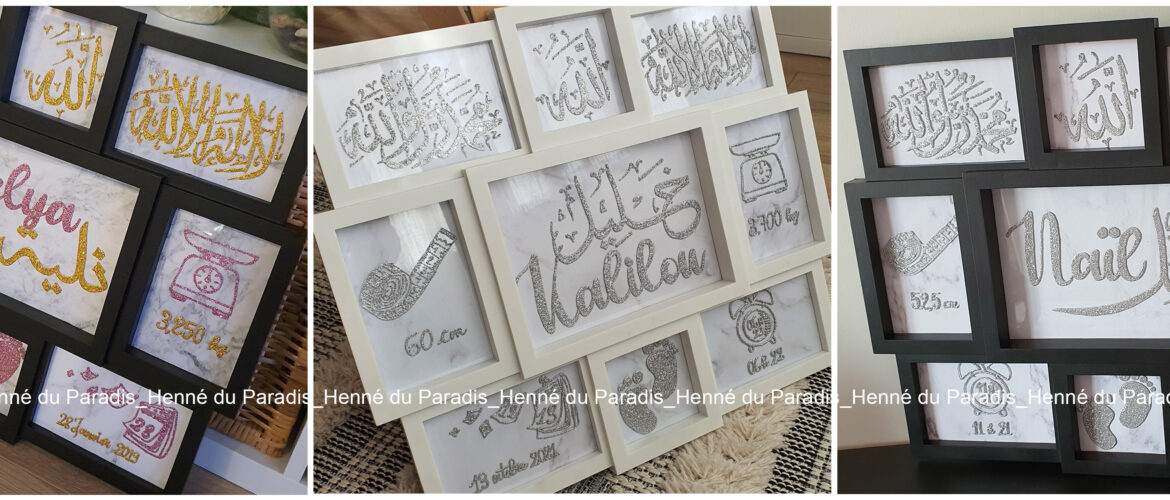 الله
لا إله إلا الله
lya
3,250 kg
28
28 Janvier 2019
محمد رسول الله
الله
لا إله إلا الله
خليل
Kalilou
3.700 kg
60 cm
13
13 octobre 2021
06h22
محمد رسول الله
الله
52,5 cm
Naïl
11h21
enné du Paradis_Henné du Paradis_Henné du Paradis_Henné du Paradis_Henné du Paradis_Henné du Paradis_Henné du Paradis